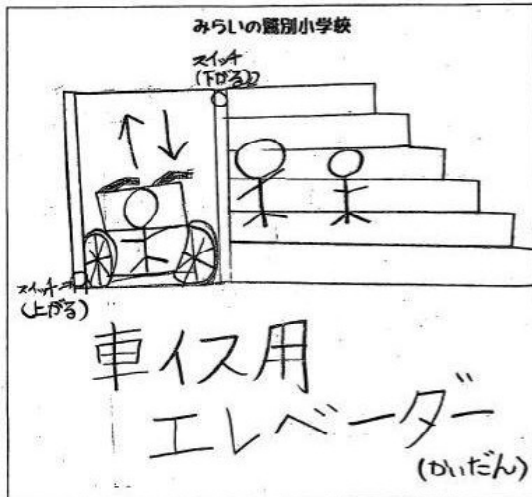 みらいの鷲別小学校
スイッチ
(下がる)
スイッチ→
(上がる)
車イス用
エレベーター
(かいだん)